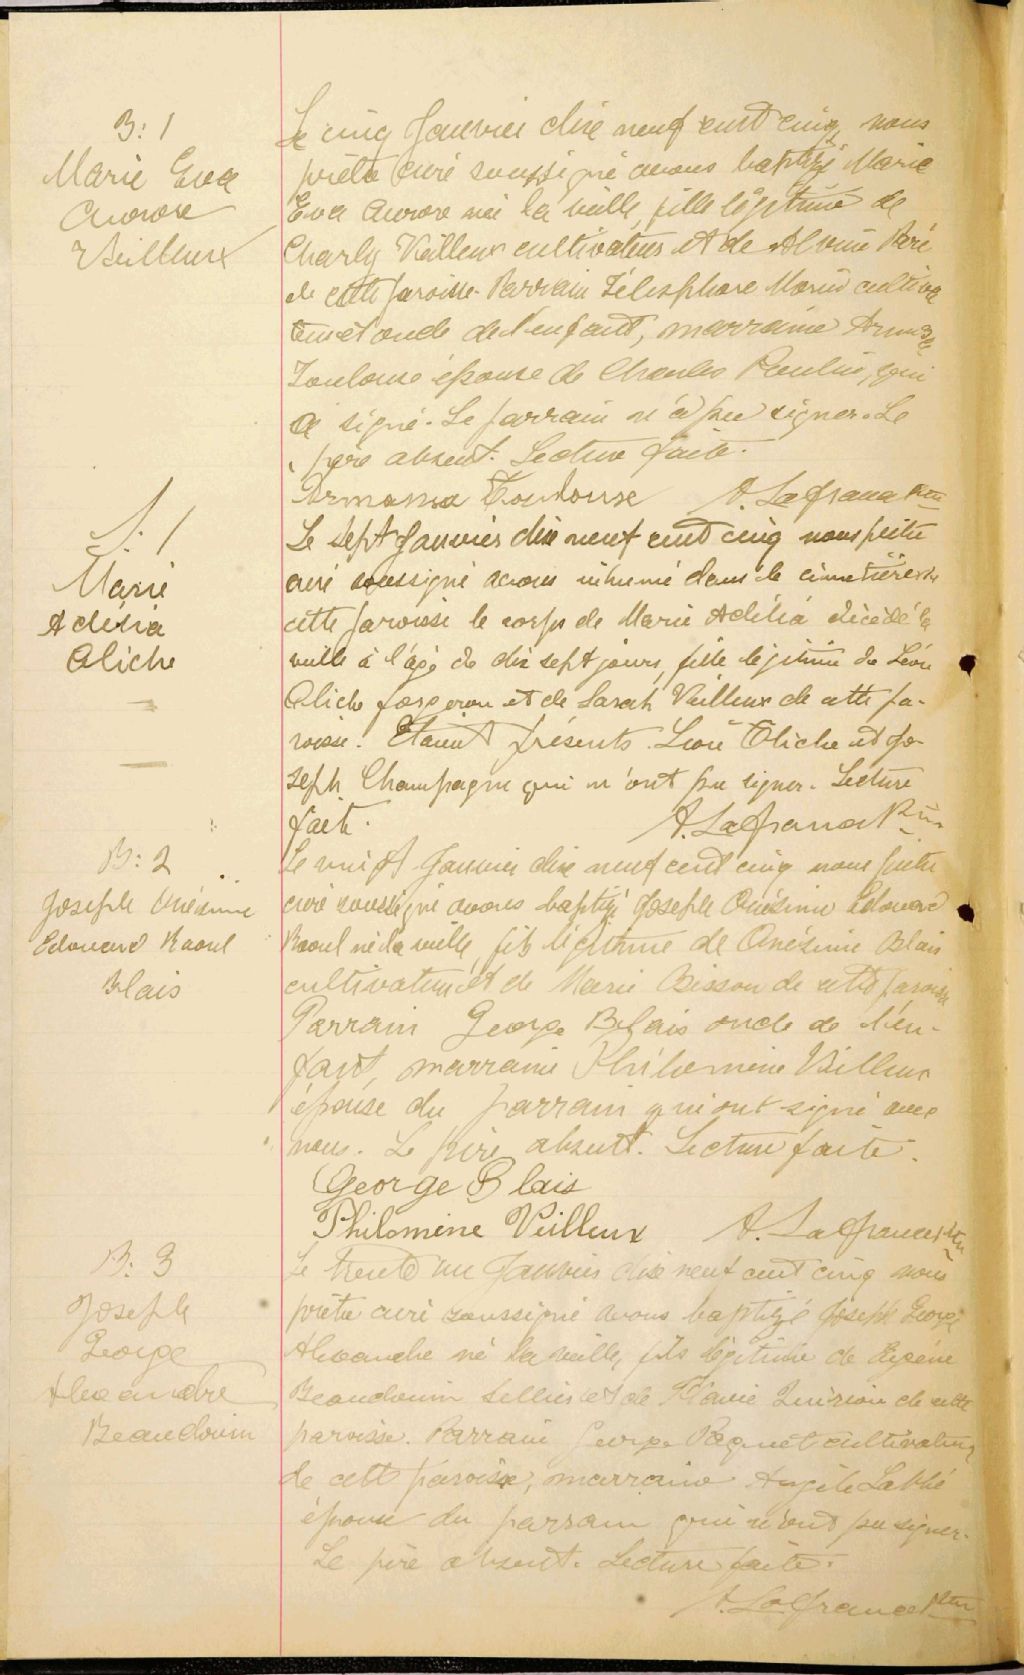 B: 1
Marie Eva
Aurore
Veilleux
Le cinq Janvier dixe neuf cent cinq, nous
prêtre curé soussigné avons baptizé Marie
Eva Aurore née la veille, fille légitime de
Charly Veilleux cultivateur et de Alvine Paré
de cette paroisse. Parrain Télesphore Morin cultiva
teur et oncle de l'enfant, marraine
Toulouse épouse de Charles Poulin, qui
a signé. Le parrain n'a pu signer. Le
père absent. Lecture faite.
Toulouse A. Lafrance Ptre
S. 1
Marie
Adélia
Cliche
Le sept Janvier dixe neuf cent cinq nous prêtre
curé soussigné avons inhumé dans le cimetière de
cette paroisse le corps de Marie Adélia décédé la
veille à l'âge de dix sept jours, fille légitime de Léon
Cliche forgeron et de Sarah Veilleux de cette pa-
roisse. Etaient présents Léon Cliche et Jo-
seph Champagne qui n'ont pu signer. Lecture
faite. A. Lafrance Ptre
B: 2
Joseph Onésime
Edouard Raoul
Blais
Le Janvier dixe neuf cent cinq nous prêtre
curé soussigné avons baptizé Joseph Onésime Edouard
Raoul né la veille, fils légitime de Onésime Blais
cultivateur et de Marie Bisson de cette paroisse
Parrain George Blais oncle de l'en-
fant, marraine Philomène Veilleux
épouse du parrain qui ont signé avec
nous. Le père absent. Lecture faite.
George Blais
Philomine Veilleux A. Lafrance Ptre
B: 3
Joseph
George
Alexandre
Beaudouin
Le trente un Janvier dixe neuf cent cinq nous
prêtre curé soussigné avons baptizé Joseph George
Alexandre né la veille, fils légitime de Eugène
Beaudouin sellier et de de cette
paroisse. Parrain George Paquet cultivateur
de cette paroisse, marraine Angèle Labbé
épouse du parrain qui n'ont pu signer.
Le père absent. Lecture faite.
A. Lafrance Ptre